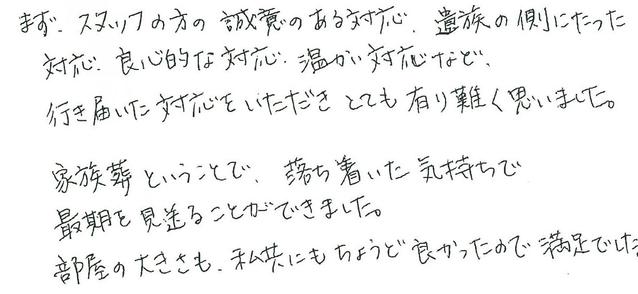 まず、スタッフの方の誠意のある対応、遺族の側にたった
対応、良心的な対応、温かい対応など、
行き届いた対応をいただきとても有り難く思いました。
家族葬ということで、落ち着いた気持ちで
最期を見送ることができました。
部屋の大きさも、私共にもちょうど良かったので満足でした